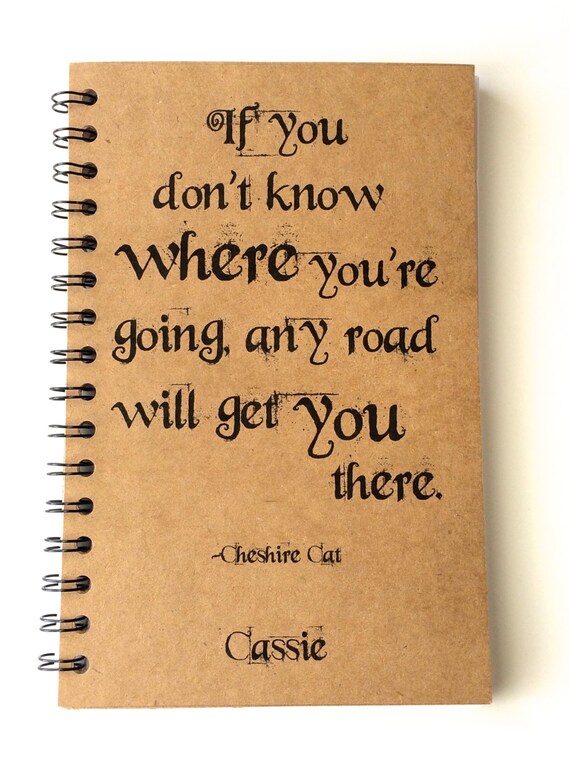 If you
don't know
where you're
going, any road
will get you
there.
~Cheshire Cat
Cassie